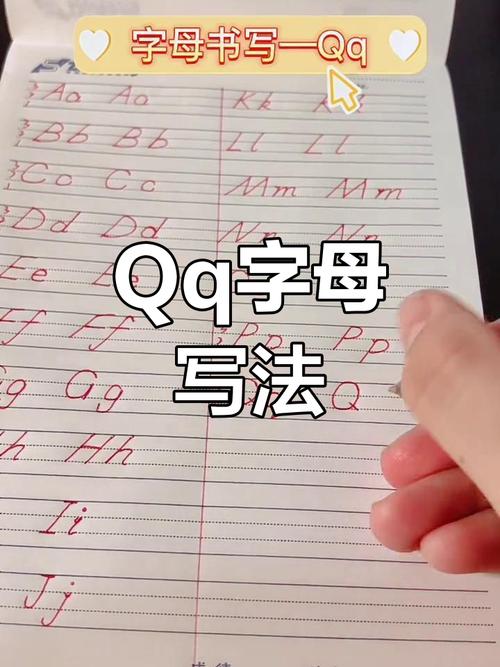 字母书写—Qq
Aa Aa Kk
Bb Bb Ll Ll
Cc Cc Mm Mm
Dd Dd Nn Nn
Qq字母
Ee Ee
Ff Ff Pp Pp
写法
Gg Q
Hh
Ii
Jj